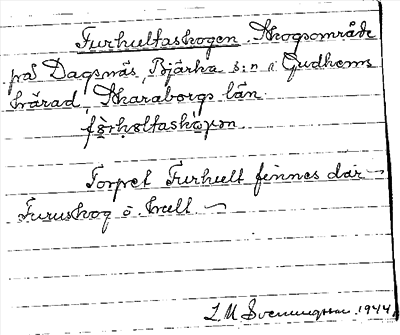 Furhultaskogen. Skogsområde
på Dagsnäs, Bjärka s:n i Gudhems
härad, Skaraborgs län.
Torpet Furhult finnes där –
Furuskog o. hult. –
L. M. Svenungsson 1944